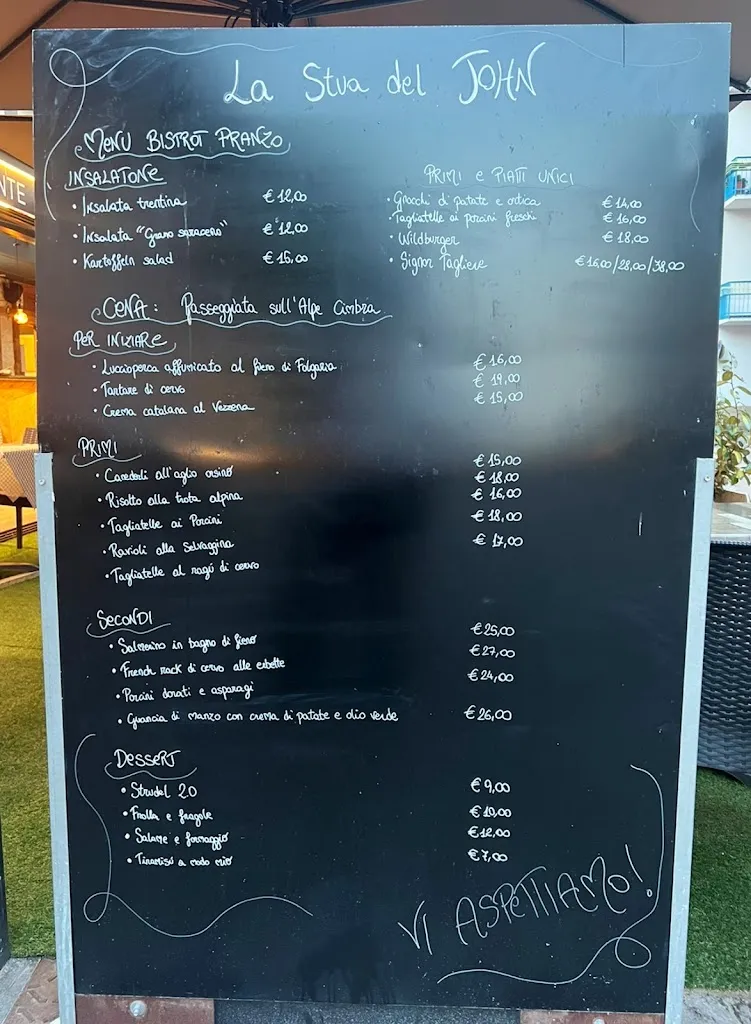 La Stua del JOHN
MENU BISTROT PRANZO
INSALATONE
• Insalata trentina € 12,00
• Insalata "Grano saraceno" € 12,00
• Kartoffeln salad € 15,00
PRIMI e PIATTI UNICI
• Gnocchi di patate e ortica € 14,00
• Tagliatelle ai porcini freschi € 16,00
• Wildburger € 18,00
• Signor Tagliere € 16,00/28,00/38,00
CENA: Passeggiata sull'Alpe Cimbra
PER INIZIARE
• Lucioperca affumicato al fieno di Folgaria € 16,00
• Tartare di cervo € 19,00
• Crema catalana al Vezzena € 15,00
PRIMI
• Canederli all'aglio orsino € 15,00
• Risotto alla trota alpina € 18,00
• Tagliatelle ai Porcini € 16,00
• Ravioli alla Selvaggina € 18,00
• Tagliatelle al ragù di cervo € 17,00
SECONDI
• Salmerino in bagno di fieno € 25,00
• French rack di cervo alle erbette € 27,00
• Porcini dorati e asparagi € 24,00
• Guancia di manzo con crema di patate e olio verde € 26,00
DESSERT
• Strudel 2.0 € 9,00
• Frolla e fragole € 10,00
• Salame e formaggio € 12,00
• Tiramisù a modo mio € 7,00
VI ASPETTIAMO!
NTE